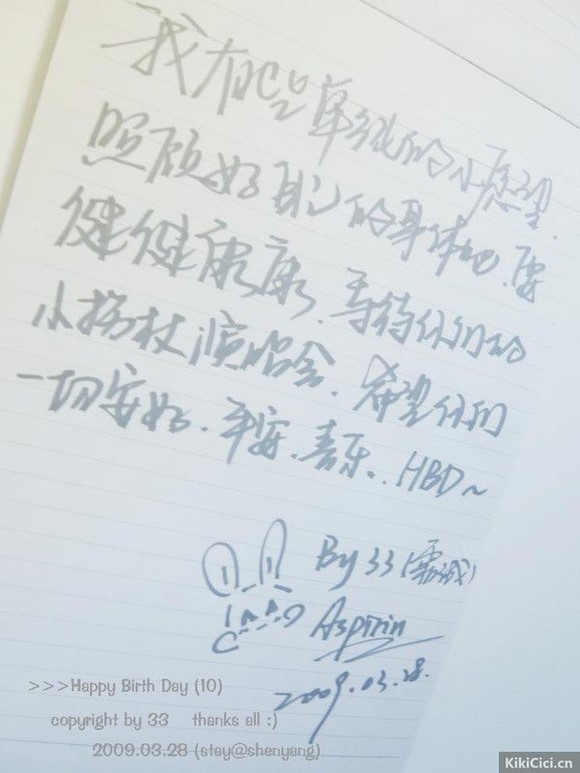 我有些单纯的小愿望.
照顾好自己的身体也.要
健健康康.等待你们的
小拐杖演唱会.希望你们
一切安好.平安.喜乐..HBD~
By 33
Aspirin
2009.03.28.
>>>Happy Birth Day (10)
copyright by 33 thanks all :)
2009.03.28 (stay@shenyang)
KikiCici.cn